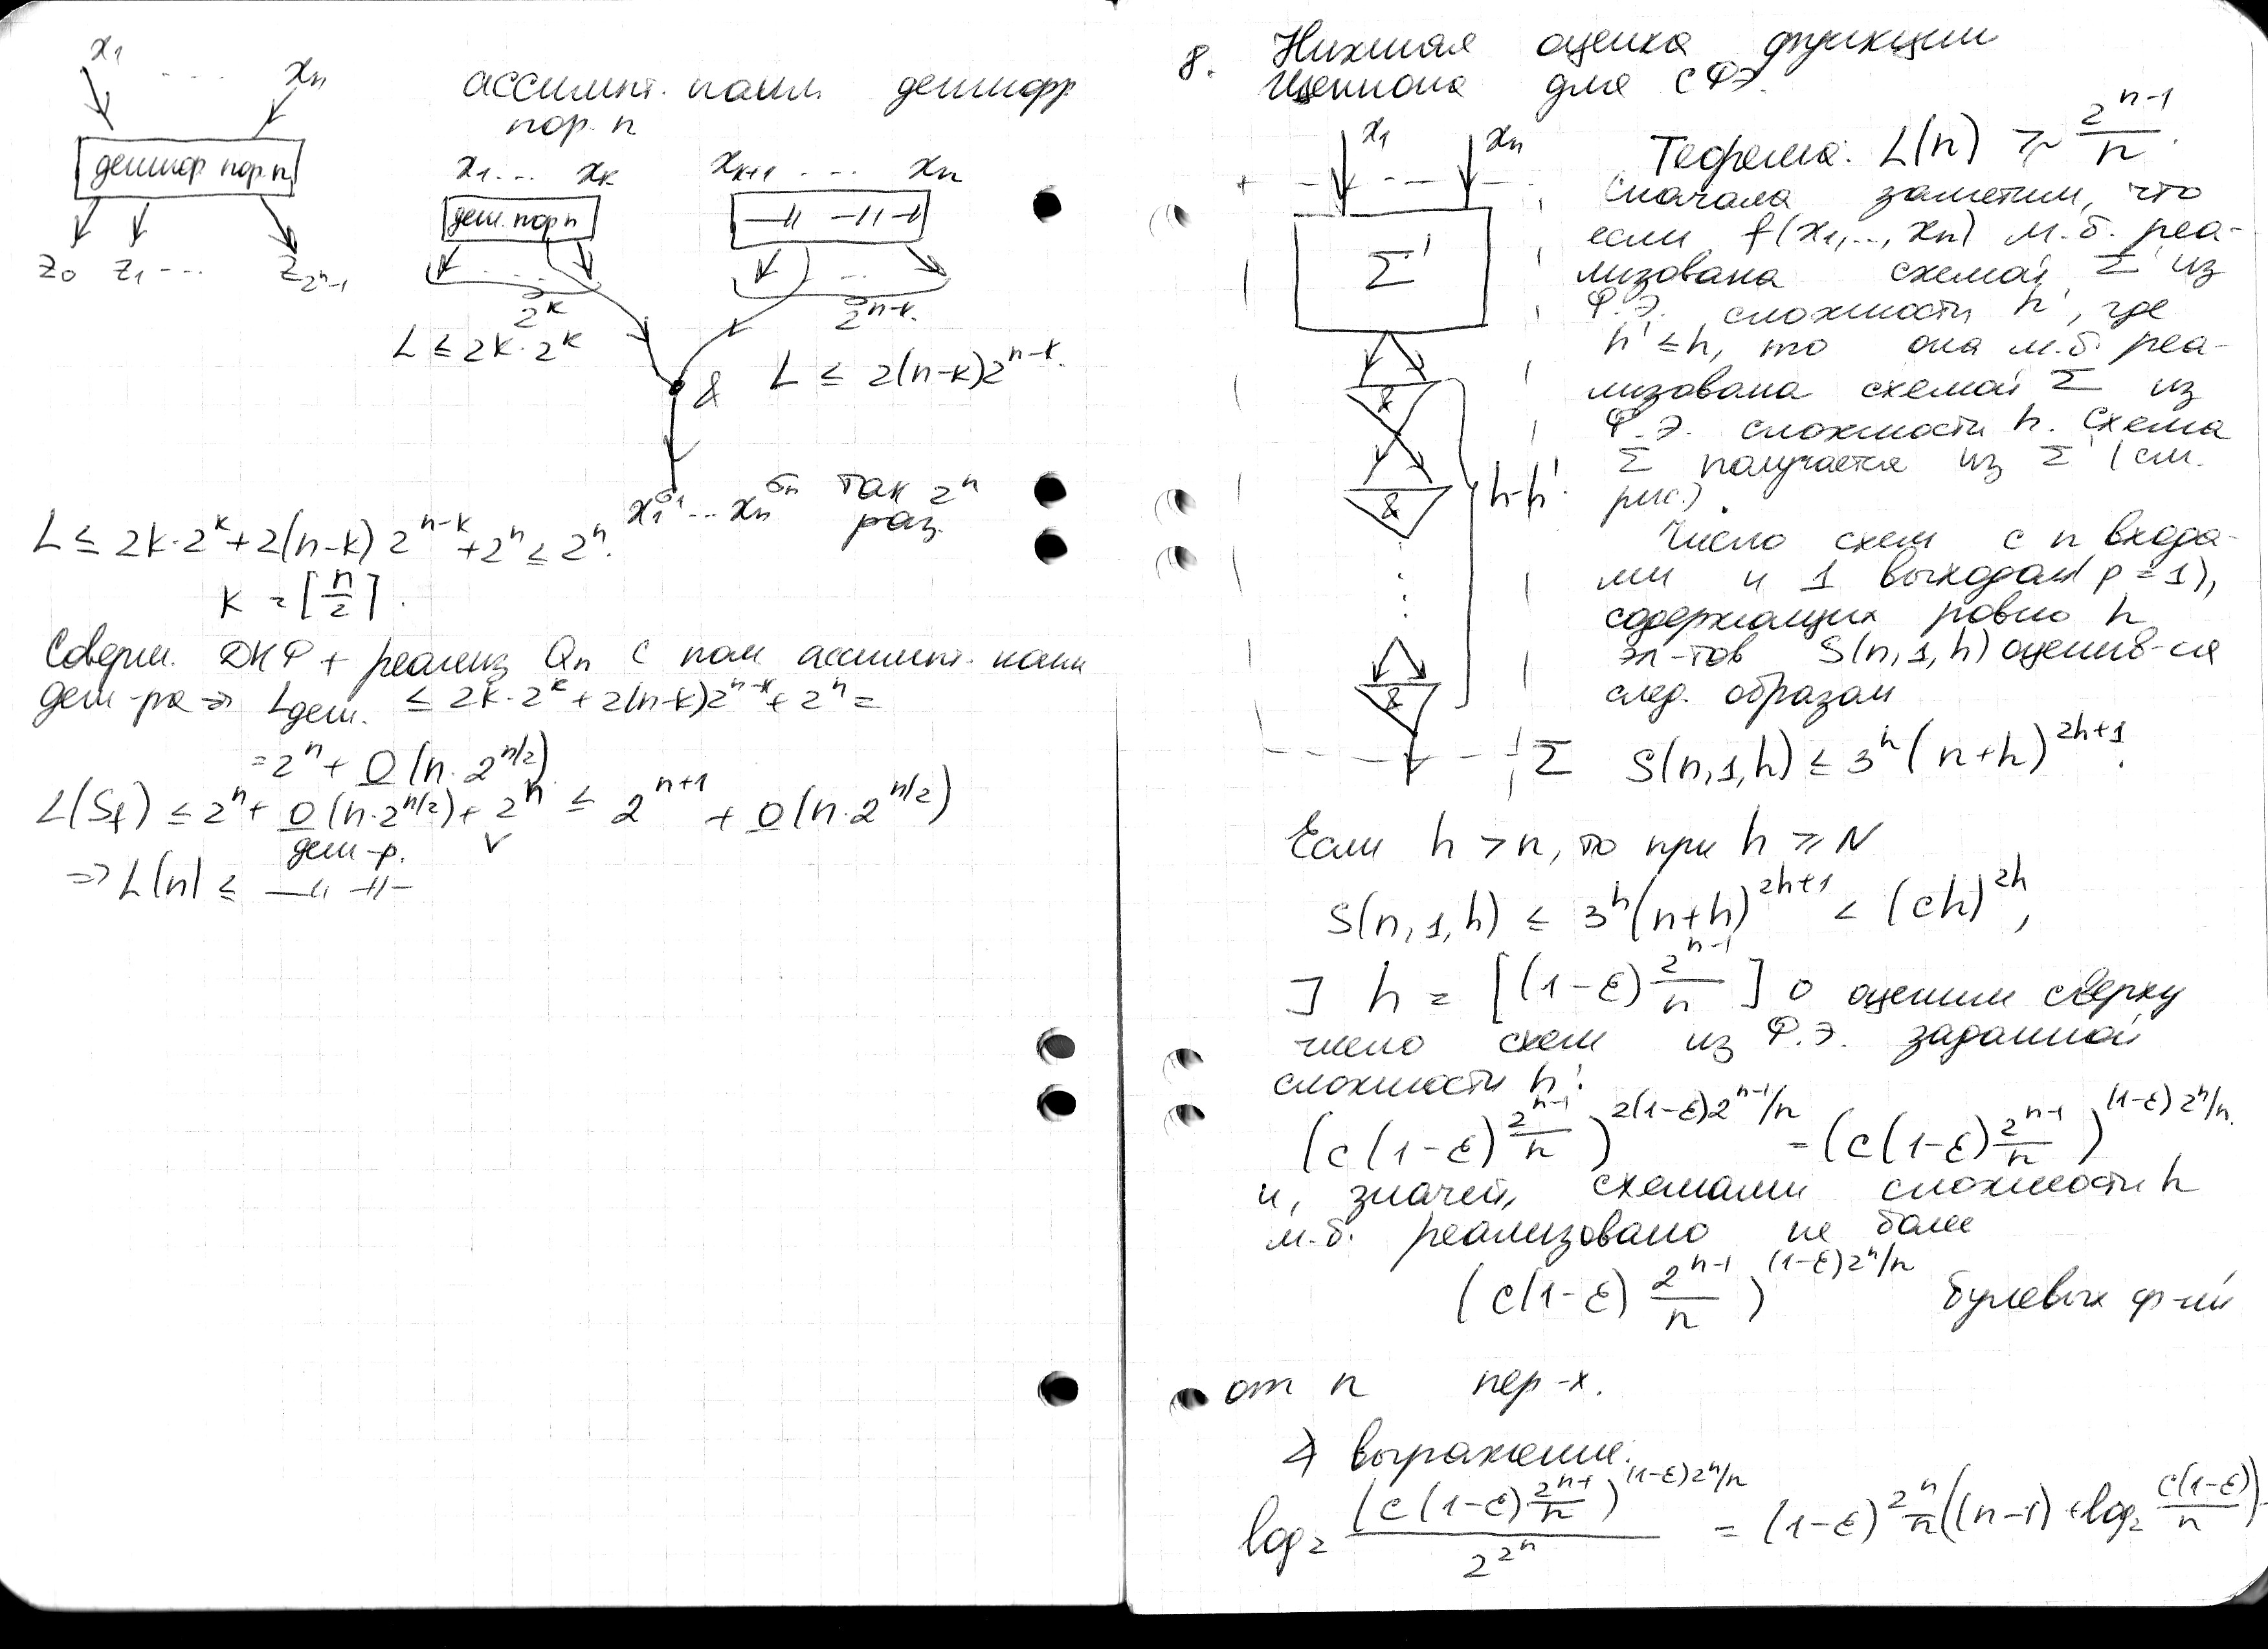 x₁ ... xₙ
дешифр пор. n
z₀ z₁ ... z_{2ⁿ-1}
ассимпт. наил. дешифр
пор. n
x₁ ... xₖ x_{k+1} ... xₙ
деш. пор n —〃 —〃—
2ᵏ 2ⁿ⁻ᵏ
L ≤ 2k·2ᵏ L ≤ 2(n-k)2ⁿ⁻ᵏ.
&
x₁^{σ₁} ... xₙ^{σₙ} так 2ⁿ
раз.
L ≤ 2k·2ᵏ + 2(n-k) 2ⁿ⁻ᵏ + 2ⁿ ≤ 2ⁿ.
k = [n/2].
Соверш. ДНФ + реализ Qₙ с пом ассимпт. наил
деш-ра ⇒ L_{деш.} ≤ 2k·2ᵏ + 2(n-k)2ⁿ⁻ᵏ + 2ⁿ =
= 2ⁿ + O(n·2^{n/2})
L(S_f) ≤ 2ⁿ + O(n·2^{n/2}) + 2ⁿ ≤ 2ⁿ⁺¹ + O(n·2^{n/2})
деш-р. ∨
⇒ L(n) ≤ —〃 —〃—
8. Нижняя оценка функции
Шеннона для СФЭ.
x₁ xₙ
Σ'
&
&
h-h'
&
Σ
Теорема: L(n) ≳ 2ⁿ⁻¹/n.
Сначала заметим, что
если f(x₁,..., xₙ) м.б. реа-
лизована схемой Σ' из
Ф.Э. сложности h', где
h' ≤ h, то она м.б. реа-
лизована схемой Σ из
Ф.Э. сложности h. Схема
Σ получается из Σ' (см.
рис.).
Число схем с n входа-
ми и 1 выходом (p = 1),
содержащих ровно h
эл-тов S(n,1,h) оценив-ся
след. образом
S(n,1,h) ≤ 3ʰ(n+h)²ʰ⁺¹.
Если h > n, то при h ≥ N
S(n,1,h) ≤ 3ʰ(n+h)²ʰ⁺¹ < (ch)²ʰ,
] h = [(1-ε) 2ⁿ⁻¹/n] оценим сверху
число схем из Ф.Э. заданной
сложности h:
(c(1-ε) 2ⁿ⁻¹/n)^{2(1-ε)2ⁿ⁻¹/n} = (c(1-ε) 2ⁿ⁻¹/n)^{(1-ε)2ⁿ/n}.
и, значит, схемами сложности h
м.б. реализовано не более
(c(1-ε) 2ⁿ⁻¹/n)^{(1-ε)2ⁿ/n} булевых ф-ий
от n пер-х.
выражение:
log₂ (c(1-ε) 2ⁿ⁻¹/n)^{(1-ε)2ⁿ/n} / 2^{2ⁿ} = (1-ε) 2ⁿ/n ((n-1) + log₂ c(1-ε)/n) -